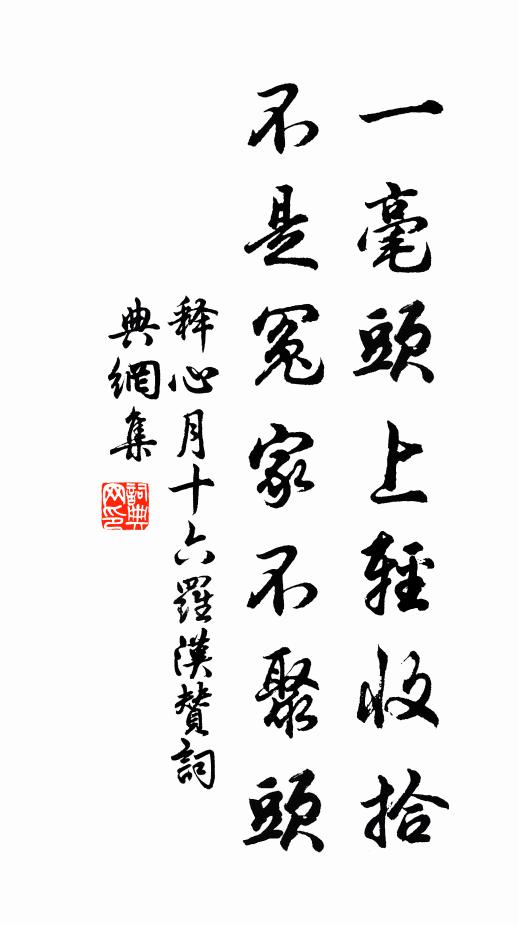 一毫頭上輕收拾
不是冤家不聚頭
释心月十六羅漢贊詞
典網集
詞典
网印